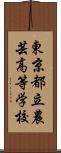 東京都立農
芸高等学校